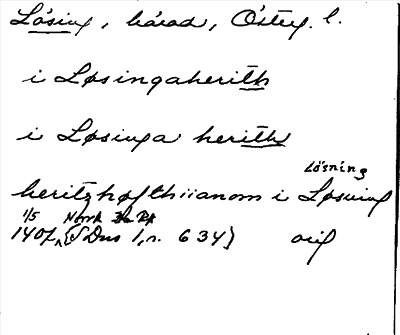 Lösing, härad, Österg. l.
i Løsingaherith
i Løsinga herith
Lösning
heritzhøfthiianom i Løsning
1/5 Norrk RA
1401 (SDns 1, n. 634) orig